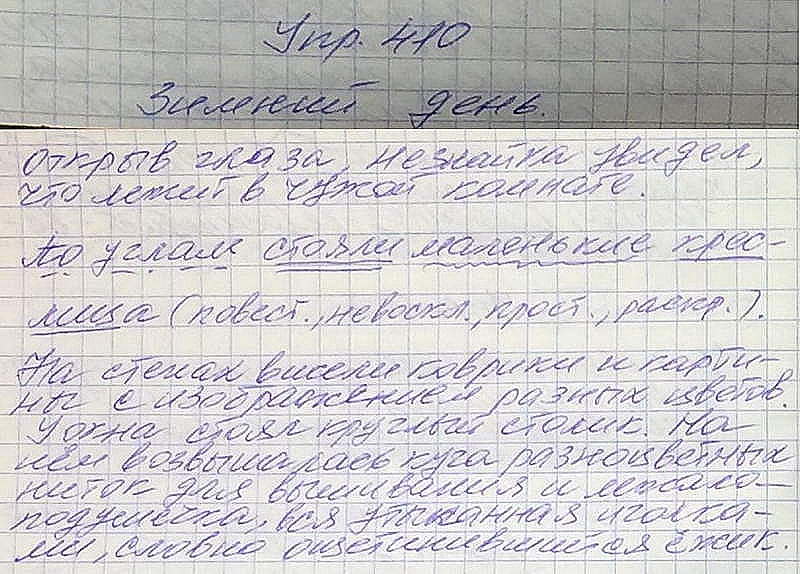 Упр. 410
Зимний день.
Открыв глаза, Незнайка увидел,
что лежит в чужой комнате.
По углам стояли маленькие крес-
лица (повест., невоскл., прост., раскр.).
На стенах висели коврики и карти-
ны с изображением разных цветов.
У окна стоял круглый столик. На
нём возвышалась куча разноцветных
ниток для вышивания и лежала
подушечка, вся утыканная иголка-
ми, словно ощетинившийся ёжик.